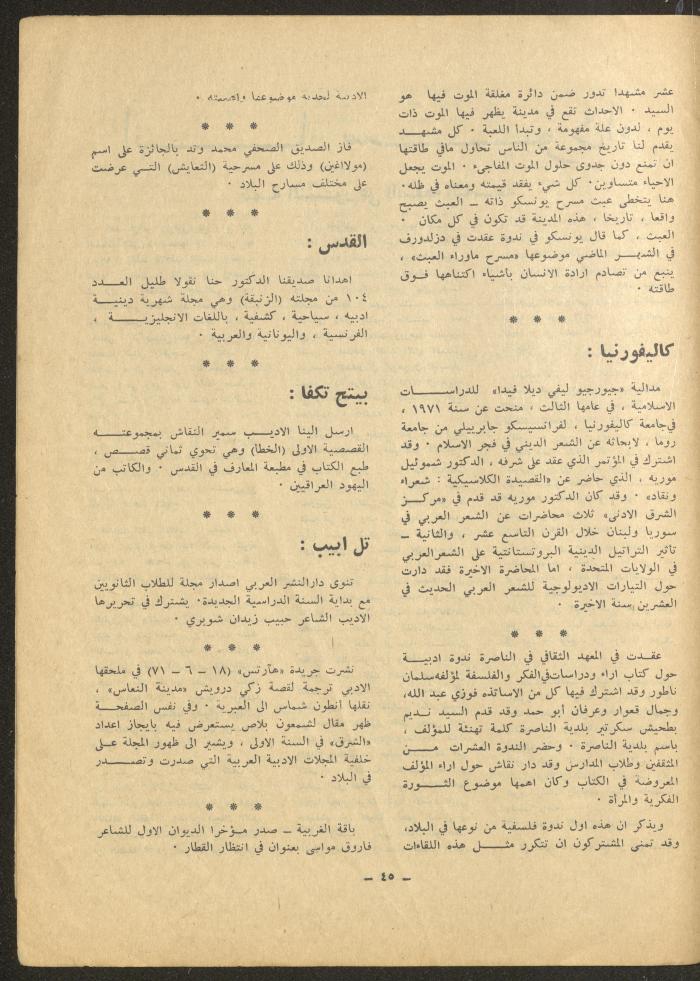 عشر مشهدا تدور ضمن دائرة مغلقة الموت فيها هو
السيد ٠ الاحداث تقع في مدينة يظهر فيها الموت ذات
يوم ، لدون علة مفهومة ، وتبدأ اللعبة ٠ كل مشهد
يقدم لنا تاريخ مجموعة من الناس تحاول مافي طاقتها
ان تمنع دون جدوى حلول الموت المفاجىء ٠ الموت يجعل
الاحياء متساوين٠ كل شيء يفقد قيمته ومعناه في ظله٠
هنا يتخطى عبث مسرح يونسكو ذاته ــ العبث يصبح
واقعا ، تاريخا ، هذه المدينة قد تكون في كل مكان ٠
العبث ، كما قال يونسكو في ندوة عقدت في دزلدورف
في الشهر الماضي موضوعها «مسرح ماوراء العبث» ،
ينبع من تصادم ارادة الانسان بأشياء اكتناهها فوق
طاقته ٠
* * *
كاليفورنيا :
مدالية «جيورجيو ليفي ديلا فيدا» للدراسات
الاسلامية ، في عامها الثالث ، منحت عن سنة ١٩٧١ ،
في جامعة كاليفورنيا ، لفرانسيسكو جابرييلي من جامعة
روما ، لابحاثه عن الشعر الديني في فجر الاسلام ٠ وقد
اشترك في المؤتمر الذي عقد على شرفه ، الدكتور شموئيل
موريه ، الذي حاضر عن «القصيدة الكلاسيكية : شعراء
ونقاد» ٠ وقد كان الدكتور موريه قد قدم في «مركز
الشرق الادنى» ثلاث محاضرات عن الشعر العربي في
سوريا ولبنان خلال القرن التاسع عشر ، والثانية ــ
تأثير التراتيل الدينية البروتستانتية على الشعر العربي
في الولايات المتحدة ، اما المحاضرة الاخيرة فقد دارت
حول التيارات الاديولوجية للشعر العربي الحديث في
العشرين سنة الاخيرة ٠
* * *
عقدت في المعهد الثقافي في الناصرة ندوة ادبية
حول كتاب اراء ودراسات في الفكر والفلسفة لمؤلفه سلمان
ناطور وقد اشترك فيها كل من الاساتذه فوزي عبد الله،
وجمال قعوار وعرفان أبو حمد وقد قدم السيد نديم
بطحيش سكرتير بلدية الناصرة كلمة تهنئة للمؤلف ،
باسم بلدية الناصرة ٠ وحضر الندوة العشرات من
المثقفين وطلاب المدارس وقد دار نقاش حول اراء المؤلف
المعروضة في الكتاب وكان اهمها موضوع الثورة
الفكرية والمرأة ٠
ويذكر ان هذه اول ندوة فلسفية من نوعها في البلاد،
وقد تمنى المشتركون ان تتكرر مثل هذه اللقاءات
الادبية لجدية موضوعها واهميته ٠
* * *
فاز الصديق الصحفي محمد وتد بالجائزة على اسم
(مولاغين) وذلك على مسرحية (التعايش) التي عرضت
على مختلف مسارح البلاد ٠
* * *
القدس :
اهدانا صديقنا الدكتور حنا نقولا طليل العدد
١٠٤ من مجلته (الزنبقة) وهي مجلة شهرية دينية
ادبيه ، سياحية ، كشفية ، باللغات الانجليزية ،
الفرنسية ، واليونانية والعربية ٠
* * *
بيتح تكفا :
ارسل الينا الاديب سمير النقاش بمجموعته
القصصية الاولى (الخطأ) وهي تحوي ثماني قصص ،
طبع الكتاب في مطبعة المعارف في القدس ٠ والكاتب من
اليهود العراقيين ٠
* * *
تل ابيب :
تنوى دار النشر العربي اصدار مجلة للطلاب الثانويين
مع بداية السنة الدراسية الجديدة٠ يشترك في تحريرها
الاديب الشاعر حبيب زيدان شويري ٠
* * *
نشرت جريدة «هآرتس» (١٨ – ٦ – ٧١) في ملحقها
الادبي ترجمة لقصة زكي درويش «مدينة النعاس» ،
نقلها أنطون شماس الى العبرية ٠ وفي نفس الصفحة
ظهر مقال لشمعون بلاص يستعرض فيه بايجاز اعداد
«الشرق» في السنة الاولى ، ويشير الى ظهور المجلة على
خلفية المجلات الادبية العربية التي صدرت وتصدر
في البلاد ٠
* * *
باقة الغربية ــ صدر مؤخرا الديوان الاول للشاعر
فاروق مواسى بعنوان في انتظار القطار ٠
– ٤٥ –